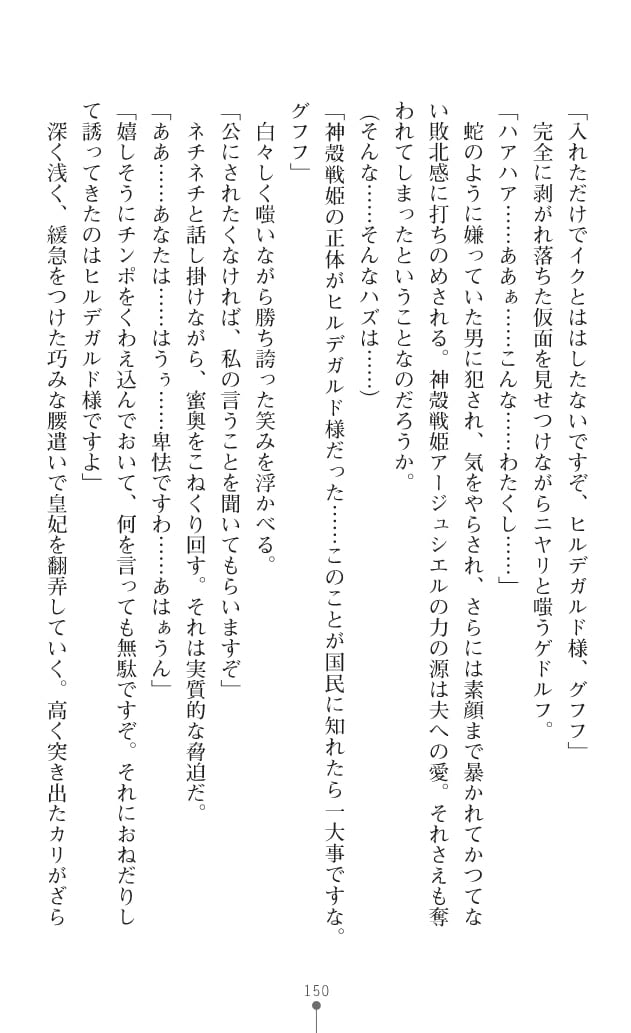 「入れただけでイクとははしたないですぞ、ヒルデガルド様、グフフ」
完全に剥がれ落ちた仮面を見せつけながらニヤリと嗤うゲドルフ。
「ハアハア……ああぁ……こんな……わたくし……」
蛇のように嫌っていた男に犯され、気をやらされ、さらには素顔まで暴かれてかつてな
い敗北感に打ちのめされる。神殻戦姫アージュシエルの力の源は夫への愛。それさえも奪
われてしまったということなのだろうか。
（そんな……そんなハズは……）
「神殻戦姫の正体がヒルデガルド様だった……このことが国民に知れたら一大事ですな。
グフフ」
白々しく嗤いながら勝ち誇った笑みを浮かべる。
「公にされたくなければ、私の言うことを聞いてもらいますぞ」
ネチネチと話し掛けながら、蜜奥をこねくり回す。それは実質的な脅迫だ。
「ああ……あなたは……はうぅ……卑怯ですわ……あはぁうん」
「嬉しそうにチンポをくわえ込んでおいて、何を言っても無駄ですぞ。それにおねだりし
て誘ってきたのはヒルデガルド様ですよ」
深く浅く、緩急をつけた巧みな腰遣いで皇妃を翻弄していく。高く突き出たカリがざら
150